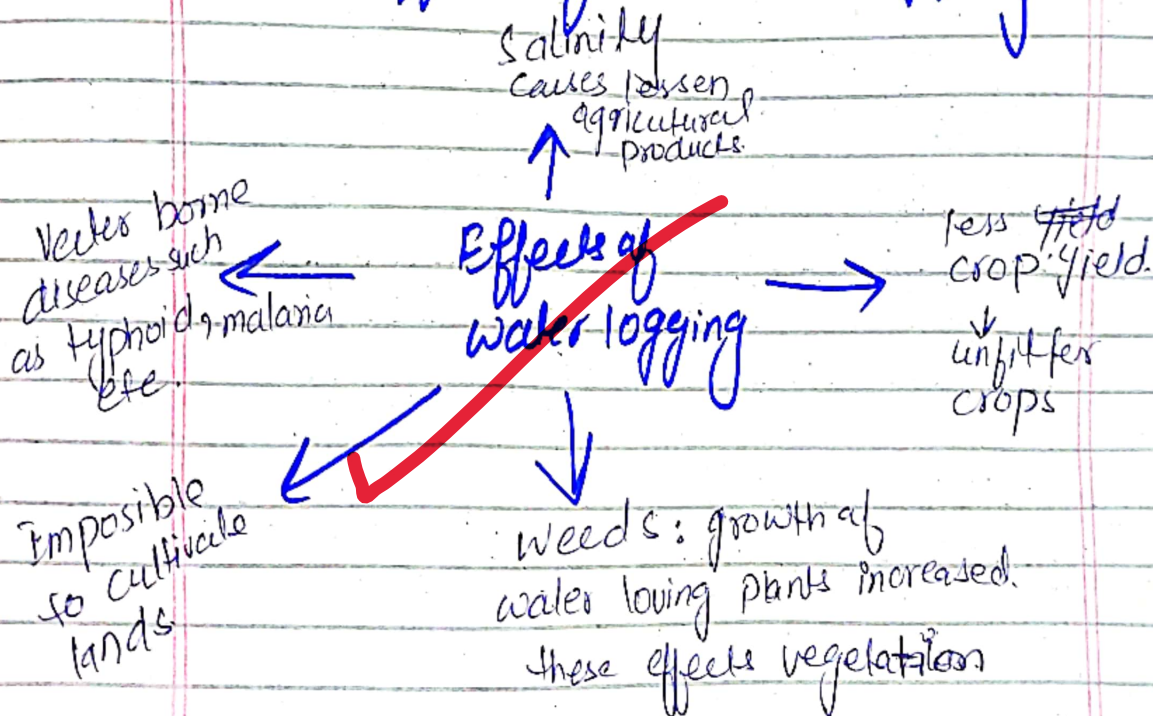 Salinity
causes lessen
agricutural
products.
Effects of
water logging
Vecter borne
diseases such
as typhoid, malaria
etc.
less
crop yield.
unfit for
crops
Imposible
to cultivate
lands
weeds: growth of
water loving plants increased.
these effects vegetation